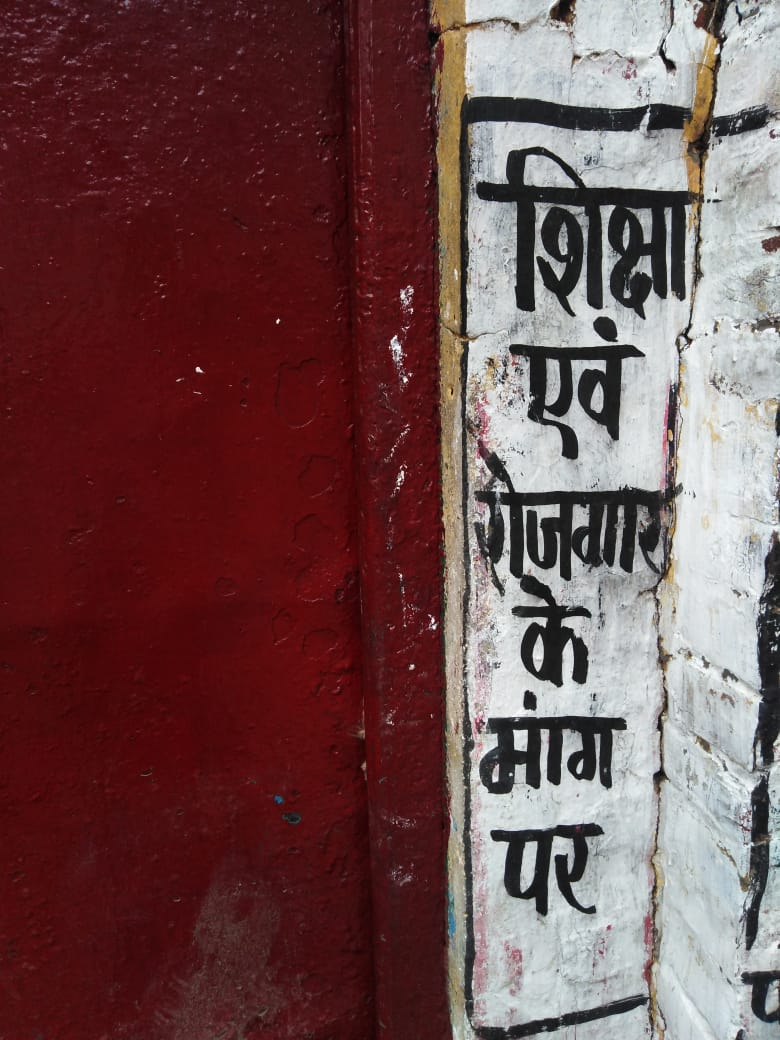 शिक्षा
एवं
रोजगार
के
मांग
पर